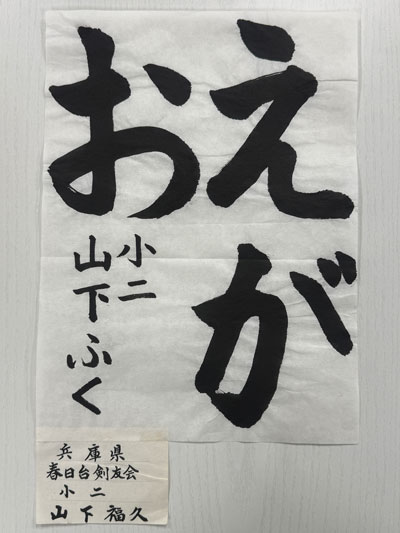 えが
お
小二
山下ふく
兵庫県
春日台剣友会
小二
山下福久